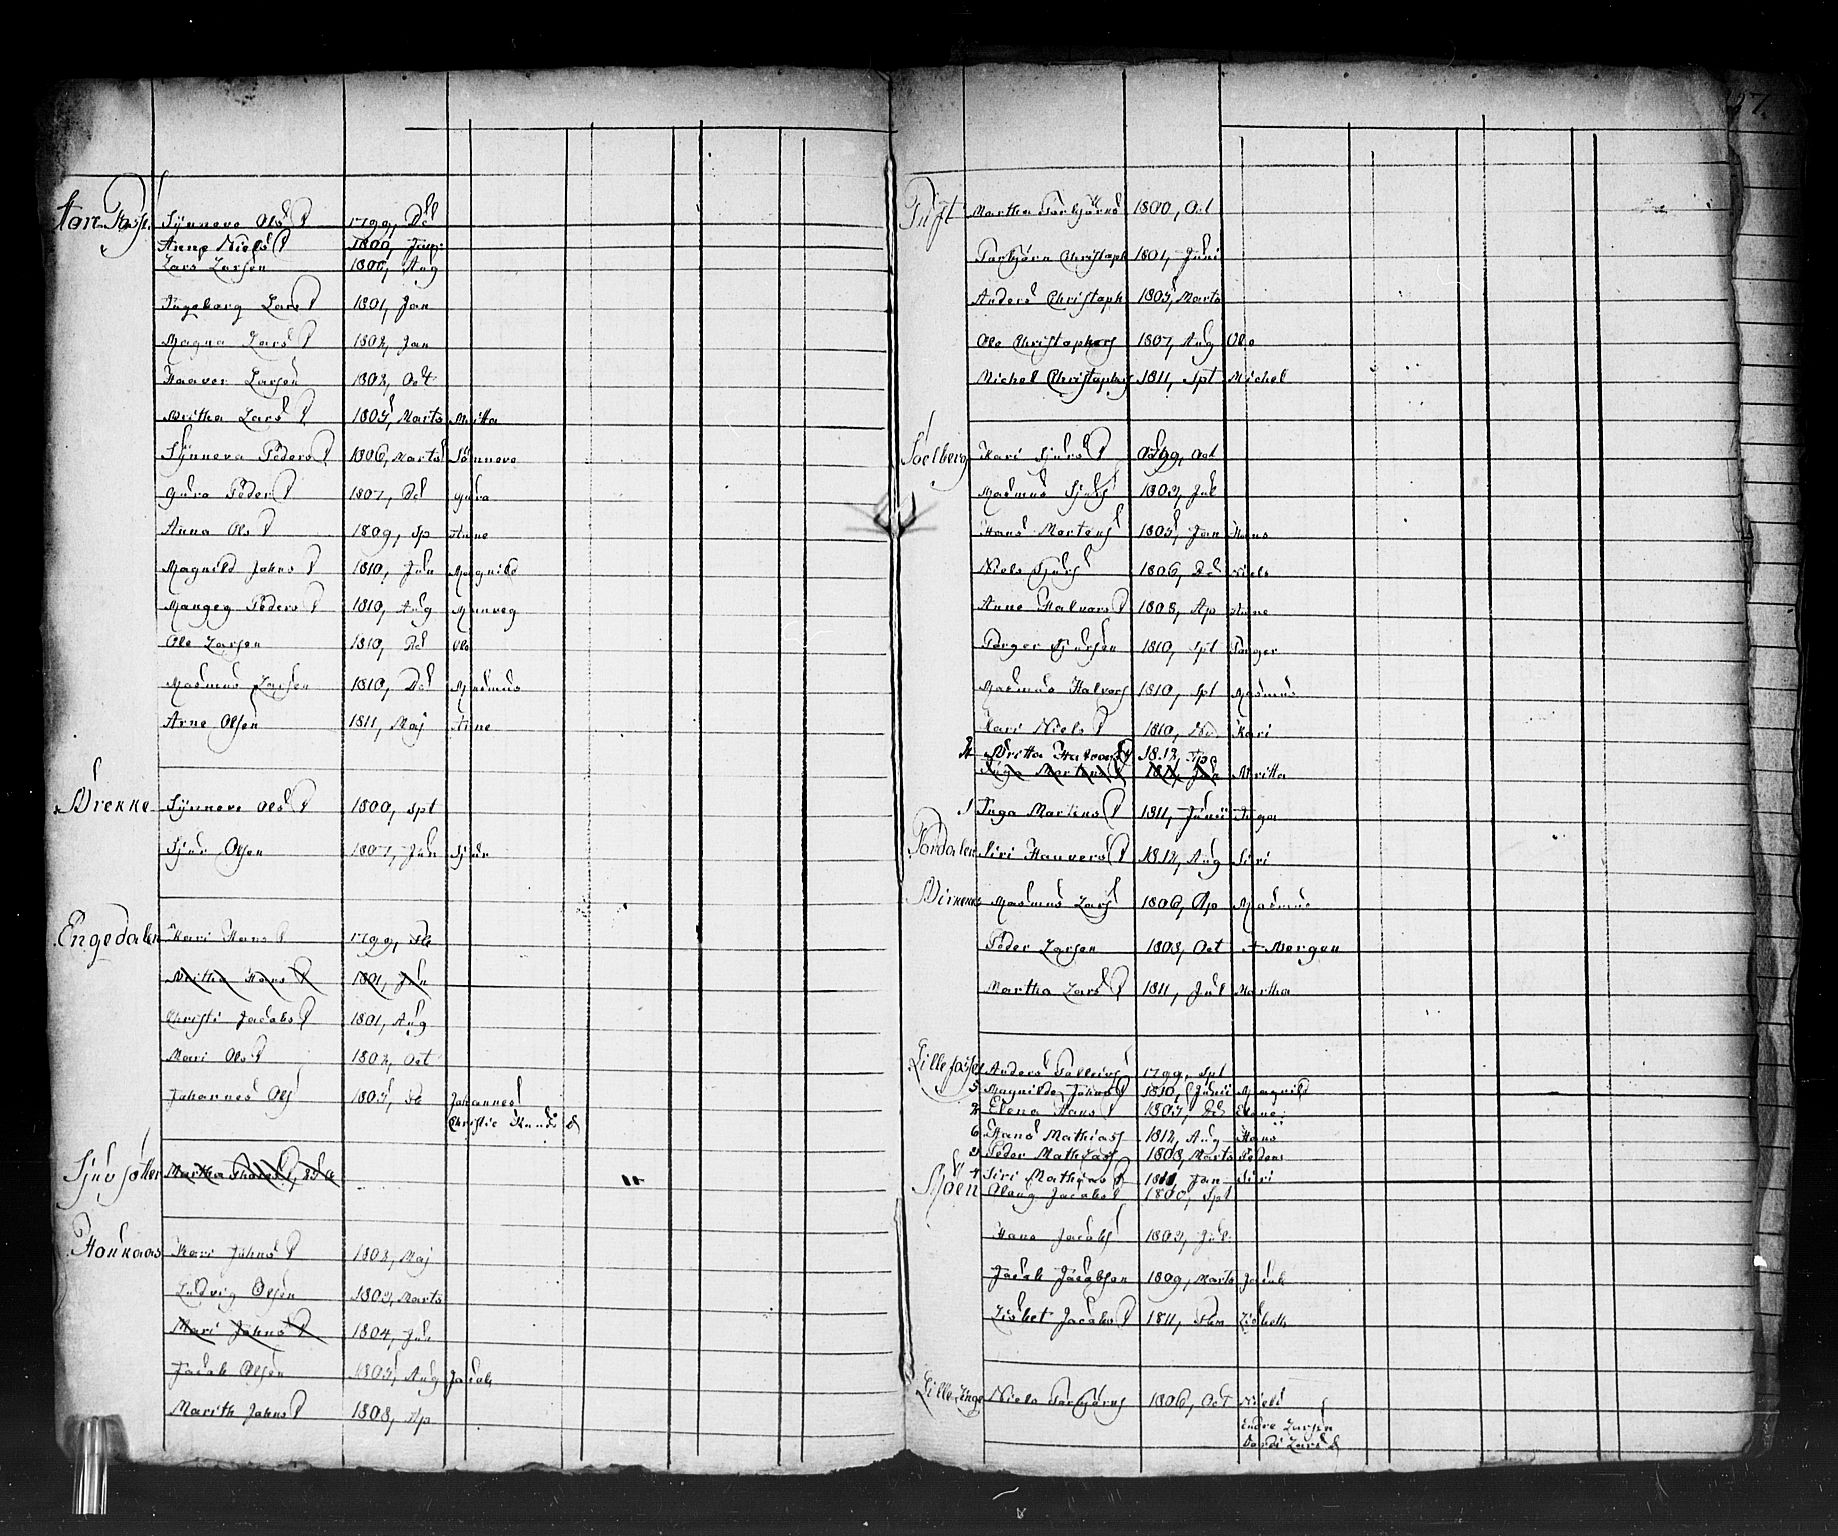 Synneve Ols D 1799, Dd
Anne Niels D 1800,
Lars Larsen 1800, Aug
Ingeborg Lars D 1801, Jan
Magna Lars D 1802, Jan
Haaver Larsen 1802, Oct
Britha Lars D 1805, Marts Britta
Synneva Peders D 1806, Marts Sönneve
Gura Peder D 1807, Dd Gura
Anna Ols D 1809, Sp Anne
Magnild Johns D 1810, Jun Magnild
Mangeg Peders D 1810, Aug
Ole Larsen 1810, Dd Ole
Rasmus Larsen 1810, Dd Rasmus
Arne Olsen 1811, Maj Arne
Brekke Synneve Ols D 1800, Spt
Sjur Olsen 1807, Jun Sjur
Engedalen Kari Hans D 1799,
Britha Hans D 1801, Jun
Christi Jacobs D 1801, Aug
Mari Ols D 1802, Oct
Johannes Ols 1805, Johannes
Christie Knuds D
Martha
Kari Johns D 1803, Maj
Ludvig Olsen 1803, Marts
Mari Johns D 1804, Jul
Jacob Olsen 1805, Aug Jacob
Marith Johns D 1808, Ap
Tuft Martha Torbjörns 1800, Oct
Torbjörn Christoph 1801, Juni
Anders Christoph 1805, Marts
Ole Christophers 1807, Aug Ole
Michel Christophers 1811, Spt Michel
Soelberg Kari Sjurs D 1799, Oct
Rasmus Sjurs 1803, Jul
Hans Mortens 1805, Jan Hans
Niels Sjurs 1806, Dd Niels
Anne Halvors D 1808, Ap Anne
Torger Sjursen 1810, Spt Torger
Rasmus Halvors 1810, Spt Rasmus
Kari Niels D 1810, Kari
Britta Halvors D 1812, Ap
Inga Martens D Britta
1 Inga Martens D 1811, Junii Inga
Siri Haavers D 1812, Aug Siri
Rasmus Lars 1806, Ap Rasmus
Peder Larsen 1808, Oct Bergen
Martha Lars D 1811, Jul Martha
Anders 1799, Spt
5 Magnilde Johns D 1810, Junii Magnild
2 Elena Hans D 1807, Dd Elene
6 Hans Mathias 1812, Aug Hans
3 Peder Mathias 1808, Marts Peder
4 Siri Mathias D 1811 Jan Siri
Jacobs 1800, Spt
Hans Jacobs 1803, Jul
Jacob Jacobsen 1809, Marts Jacob
Lisbet Jacobs D 1811, Lisbeth
Lille Enge Niels Torbjörns 1806, Oct Niels
Endre Larsen
Lars D